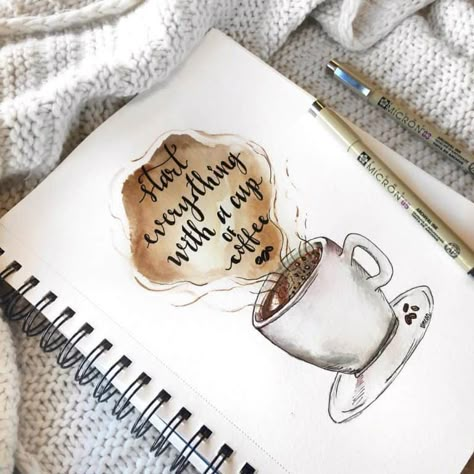 start
everything
with a cup
of
coffee
MICRON
MICRON